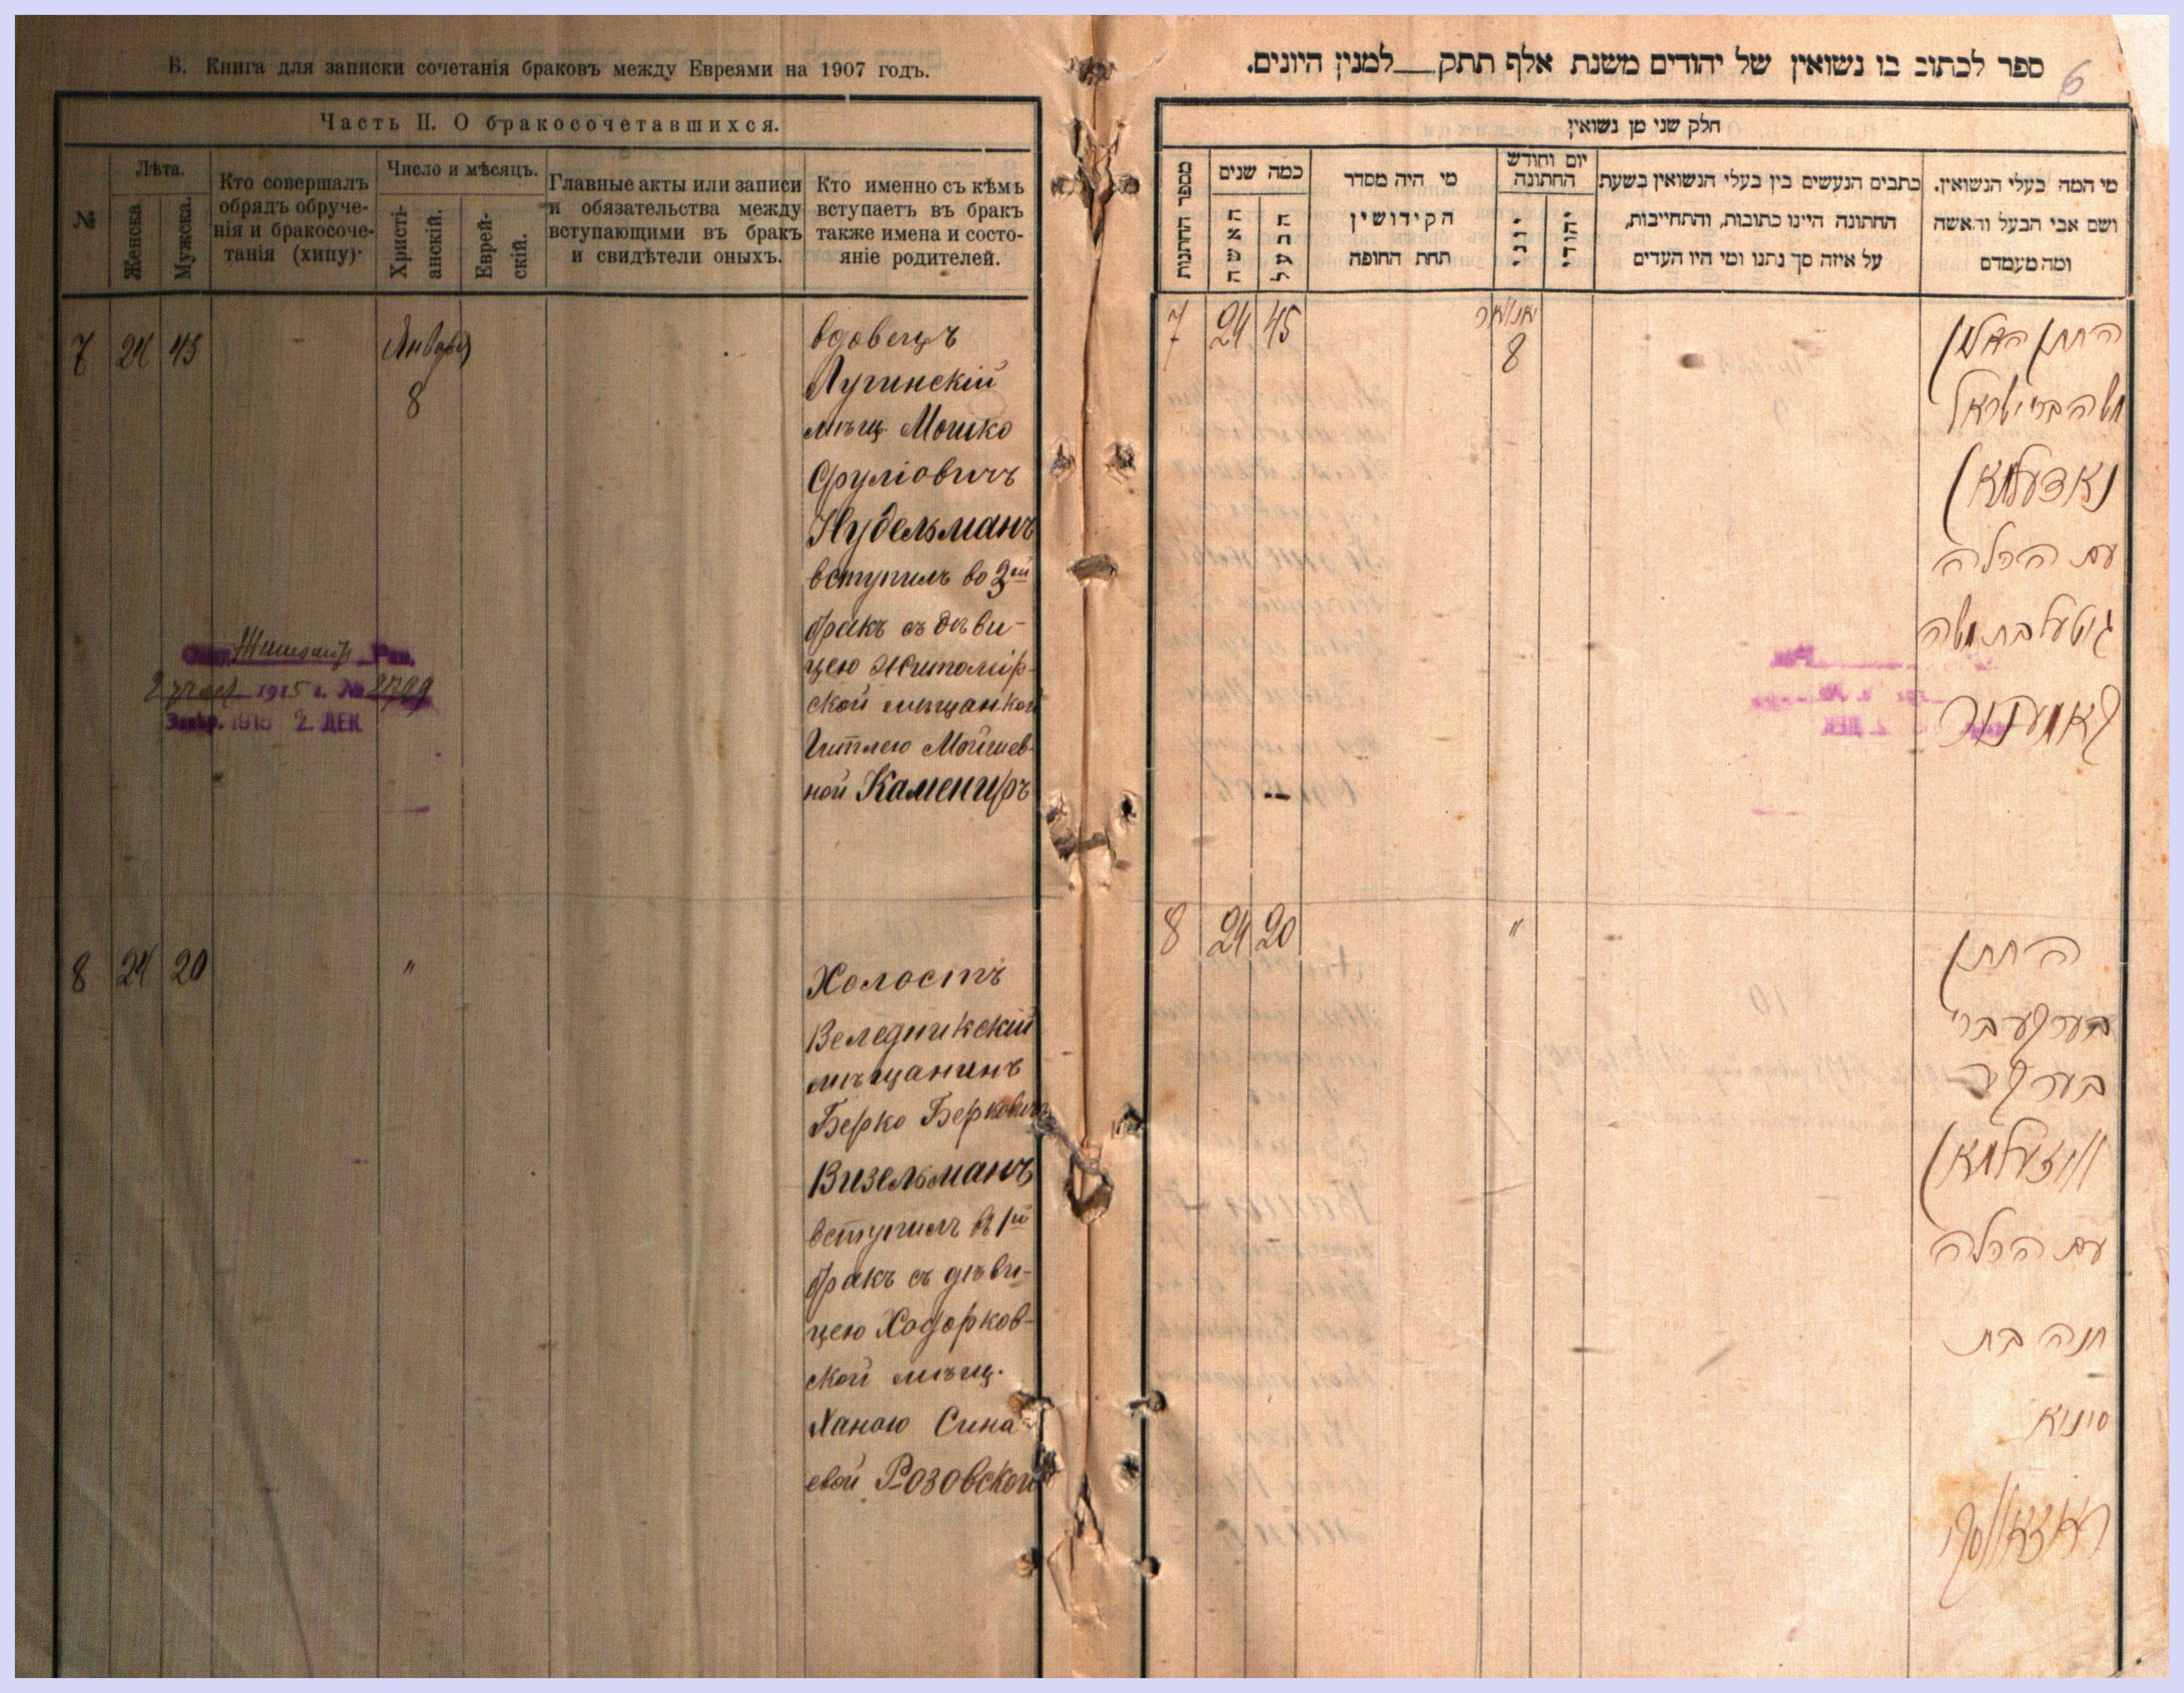 В. Книга для записки сочетанія браковъ между Евреями на 1907 годъ.
Часть II. О бракосочетавшихся.
№
Лѣта.
Женска
Мужска.
Кто совершалъ
обрядъ обруче-
нія и бракосоче-
танія (хипу)
Число и мѣсяцъ.
Христі-
анскій.
Еврей-
скій.
Главные акты или записи
и обязательства между
вступающими въ бракъ
и свидѣтели оныхъ.
Кто именно съ кѣмъ
вступаетъ въ бракъ
также имена и состо-
яніе родителей.
7 24 45
Январь
8
вдовецъ
Лугинскій
мѣщ. Мошко
Сруліовичъ
Нудельманъ
вступилъ во 2ой
бракъ съ дѣви-
цею Житомір-
ской мѣщанкой
Гитлею Мойшев-
ной Камениръ
Житомір Рав.
1915 г. №
1915 2. ДЕК
8 24 20
"
Холостъ
Веледникскій
мѣщанинъ
Берко Берковичъ
Визельманъ
вступилъ въ 1й
бракъ съ дѣви-
цею Ходорков-
ской мѣщ.
Ханою Сина-
евой Розовской
ספר לכתוב בו נשואין של יהודים משנת אלף תתק__למנין היונים.
6
חלק שני מן נשואין
מספר החתנות
כמה שנים
האשה
הבעל
מי היה מסדר
הקידושין
תחת החופה
יום וחודש
החתונה
יוני
יהודי
כתבים הנעשים בין בעלי הנשואין בשעת
החתונה היינו כתובות, והתחייבות,
על איזה סך נתנו ומי היו העדים
מי המה בעלי הנשואין.
ושם אבי הבעל והאשה
ומה מעמדם
7 24 45
יאנואר
8
החתן האלמן
משה ברי ישראל
נאדעלמאן
עם הכלה
גיטל בת משה
קאמענער
8 24 20
"
החתן
בערקע ברי
בערקע
וויזעלמאן
עם הכלה
חנה בת
סיניא
ראזאווסקי